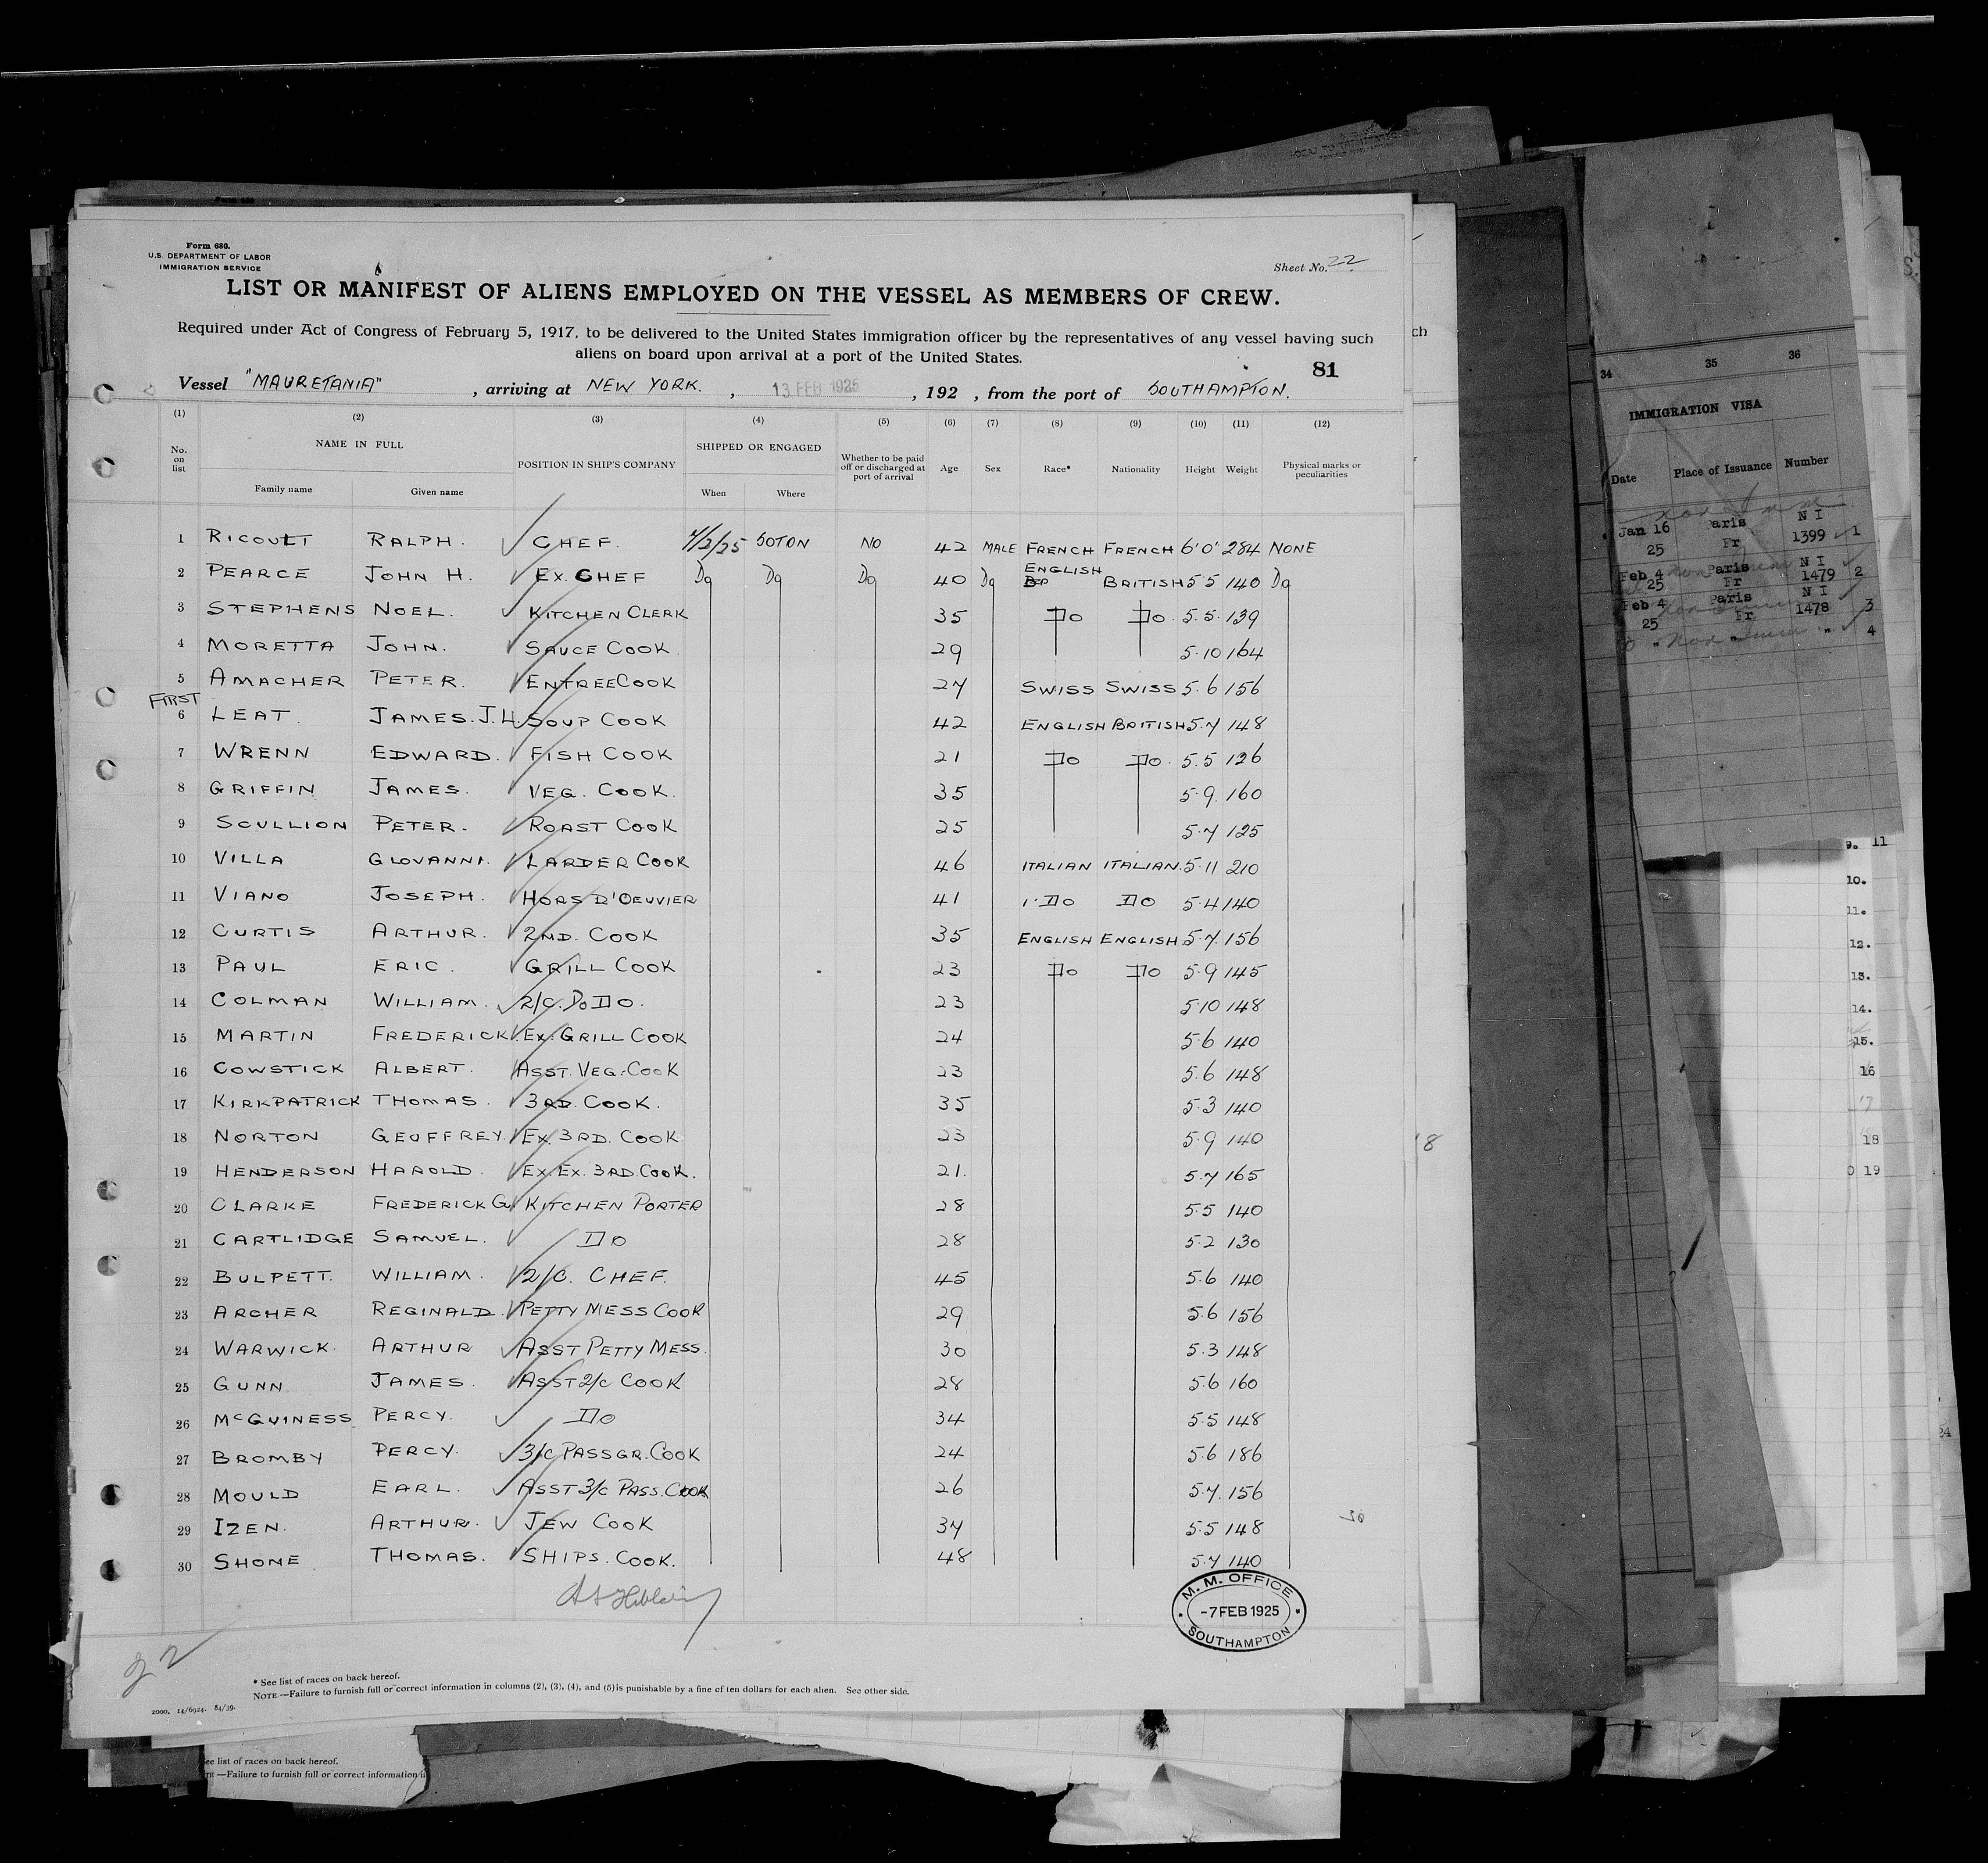 Form 680.
U.S. DEPARTMENT OF LABOR
IMMIGRATION SERVICE
Sheet No. 22
LIST OR MANIFEST OF ALIENS EMPLOYED ON THE VESSEL AS MEMBERS OF CREW.
Required under Act of Congress of February 5, 1917, to be delivered to the United States immigration officer by the representatives of any vessel having such
aliens on board upon arrival at a port of the United States.
81
Vessel "MAURETANIA", arriving at NEW YORK., 13 FEB 1925, 192 , from the port of SOUTHAMPTON.
(1) (2) (3) (4) (5) (6) (7) (8) (9) (10) (11) (12)
No. on list NAME IN FULL Family name Given name POSITION IN SHIP'S COMPANY SHIPPED OR ENGAGED When Where Whether to be paid off or discharged at port of arrival Age Sex Race* Nationality Height Weight Physical marks or peculiarities
1 RICOULT RALPH. CHEF. 7/2/25 SOTON NO 42 MALE FRENCH FRENCH 6'0" 284 NONE
2 PEARCE JOHN H. EX. CHEF Do Do Do 40 Do ENGLISH BRITISH 5 5 140 Do
3 STEPHENS NOEL. KITCHEN CLERK 35 Do Do. 5.5. 139
4 MORETTA JOHN. SAUCE COOK 29 5.10 164
5 AMACHER PETER. ENTREE COOK 27 SWISS SWISS 5.6 156
FIRST
6 LEAT. JAMES. J.H. SOUP COOK 42 ENGLISH BRITISH 5.7 148
7 WRENN EDWARD. FISH COOK 21 Do Do. 5.5 126
8 GRIFFIN JAMES. VEG. COOK. 35 5.9. 160
9 SCULLION PETER. ROAST COOK 25 5.7 125
10 VILLA GIOVANNI. LARDER COOK 46 ITALIAN ITALIAN. 5.11 210
11 VIANO JOSEPH. HORS D'OEUVIER 41 Do Do 5.4 140
12 CURTIS ARTHUR. 2ND. COOK 35 ENGLISH ENGLISH 5.7. 156
13 PAUL ERIC. GRILL COOK 23 Do Do 5.9 145
14 COLMAN WILLIAM. 2/C. Do Do. 23 5.10 148
15 MARTIN FREDERICK. EX. GRILL COOK 24 5.6 140
16 COWSTICK ALBERT. ASST. VEG. COOK 23 5.6 148
17 KIRKPATRICK THOMAS. 3RD. COOK. 35 5.3 140
18 NORTON GEUFFREY. EX. 3RD. COOK 23 5.9 140
19 HENDERSON HAROLD. EX. EX. 3RD. COOK. 21. 5.7 165
20 CLARKE FREDERICK G. KITCHEN PORTER 28 5.5 140
21 CARTLIDGE SAMUEL. Do 28 5.2 130
22 BULPETT. WILLIAM. 2/C. CHEF. 45 5.6 140
23 ARCHER REGINALD. PETTY MESS COOK 29 5.6 156
24 WARWICK. ARTHUR ASST PETTY MESS. 30 5.3 148
25 GUNN JAMES. ASST 2/C COOK 28 5.6 160
26 McGUINESS PERCY. Do 34 5.5 148
27 BROMBY PERCY. 3/C PASSGR. COOK 24 5.6 186
28 MOULD EARL. ASST 3/C PASS. COOK 26 5.7. 156
29 IZEN. ARTHUR. JEW COOK 37 5.5 148
30 SHONE THOMAS. SHIPS. COOK. 48 5.7 140
M. M. OFFICE
-7 FEB 1925
SOUTHAMPTON
* See list of races on back hereof.
NOTE.—Failure to furnish full or correct information in columns (2), (3), (4), and (5) is punishable by a fine of ten dollars for each alien. See other side.
2000. 14/6924. 84/39.
See list of races on back hereof.
—Failure to furnish full or correct information
ch
18
34 35 36
IMMIGRATION VISA
Date Place of Issuance Number
Jan 16 25 Paris Fr N I 1399 1
Feb 4 25 Paris Fr N I 1479 2
Feb 4 25 Paris Fr N I 1478 3
4
9. 11
10.
11.
12.
13.
14.
15.
16
17
18
19
24